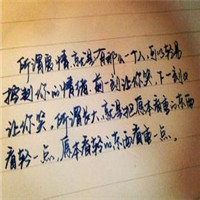 所谓爱情,就是有那么一个人,可以轻易
控制你的情绪,前一刻让你哭,下一刻又
让你笑。所谓长大,就是把原本看重的东西
看轻一点,原本看轻的东西看重一点。